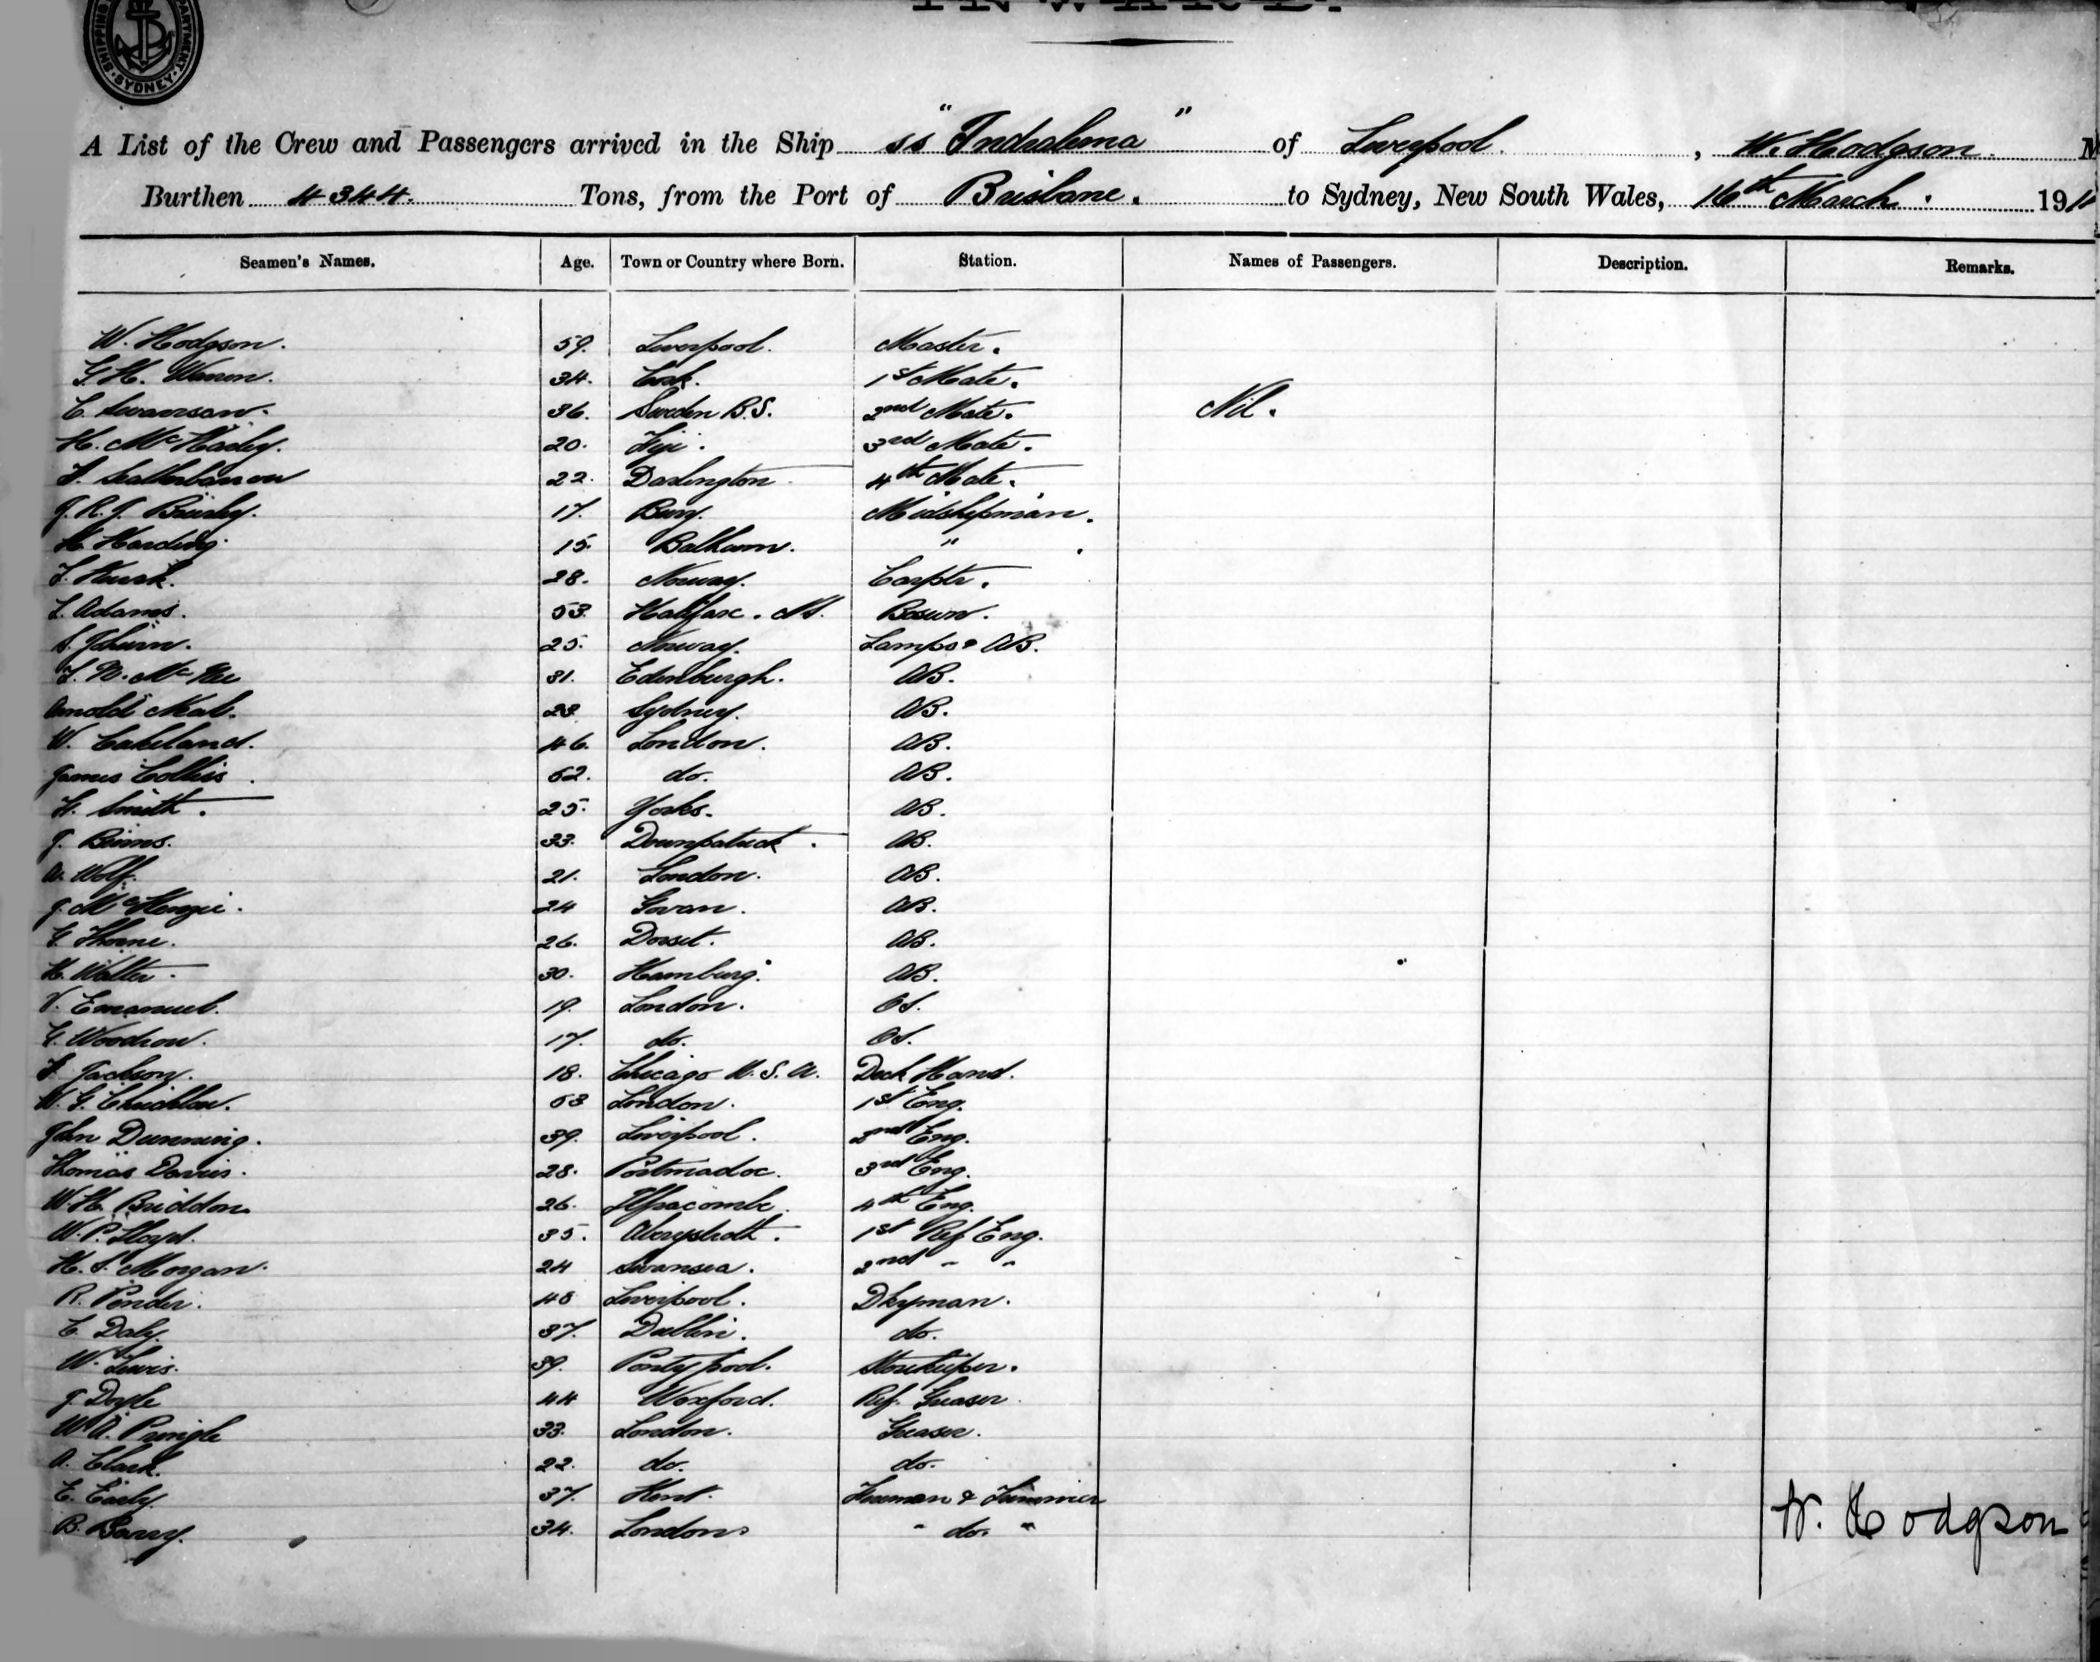 SHIPPING DEPARTMENT SYDNEY
INWARD.
A List of the Crew and Passengers arrived in the Ship ss "Indralema" of Liverpool, W. Hodgson
Burthen 4344. Tons, from the Port of Brisbane. to Sydney, New South Wales, 16th March. 191
Seamen's Names. Age. Town or Country where Born. Station. Names of Passengers. Description. Remarks.
W. Hodgson. 59. Liverpool. Master.
G. H. Warren. 34. Cork. 1st Mate.
C. Swanson. 36. Sweden B.S. 2nd Mate. Nil.
H. 20. Fiji. 3rd Mate.
22. Darlington 4th Mate.
J. R. J. 17. Bury. Midshipman.
H. Harding. 15. Balham. "
28. Norway. Carptr.
L. Adams. 53. Halifax. N.S. Bosun.
25. Norway. Lamps & AB.
31. Edinburgh. AB.
Arnold 23 Sydney. AB.
W. Cakeland. 46. London. AB.
James Collis. 62. do. AB.
H. Smith. 25. Yorks. AB.
J. Beirns. 33. Downpatrick. AB.
A. Wolf. 21. London. AB.
J. McKenzie. 24 Govan. AB.
G. Thorne. 26. Dorset. AB.
H. Walter. 30. Hamburg. AB.
V. Emanuel. 19. London. OS.
G. Woodrow. 17. do. OS.
F. Jackson. 18. Chicago U.S.A. Deck Hand.
W. G. 53 London. 1st Eng.
John Dunning. 39. Liverpool. 2nd Eng.
Thomas Davies. 28. Portmadoc. 3rd Eng.
W. H. Briddon 26. Ilfracombe. 4th Eng.
W. P. Lloyd. 35. 1st Ref Eng.
H. S. Morgan. 24 Swansea. 2nd " "
R. Pender. 48 Liverpool. Dkyman.
C. Daly. 37. Dublin. do.
W. Lewis. 39. Pontypool. Storekeeper.
J. Doyle 44 Wexford. Ref. Greaser.
W. A. Pringle 33. London. Greaser.
A. Clark. 22. do. do.
E. Early. 37. Kent. Fireman & Trimmer
B. Barry. 34. London " do. "
W. Hodgson